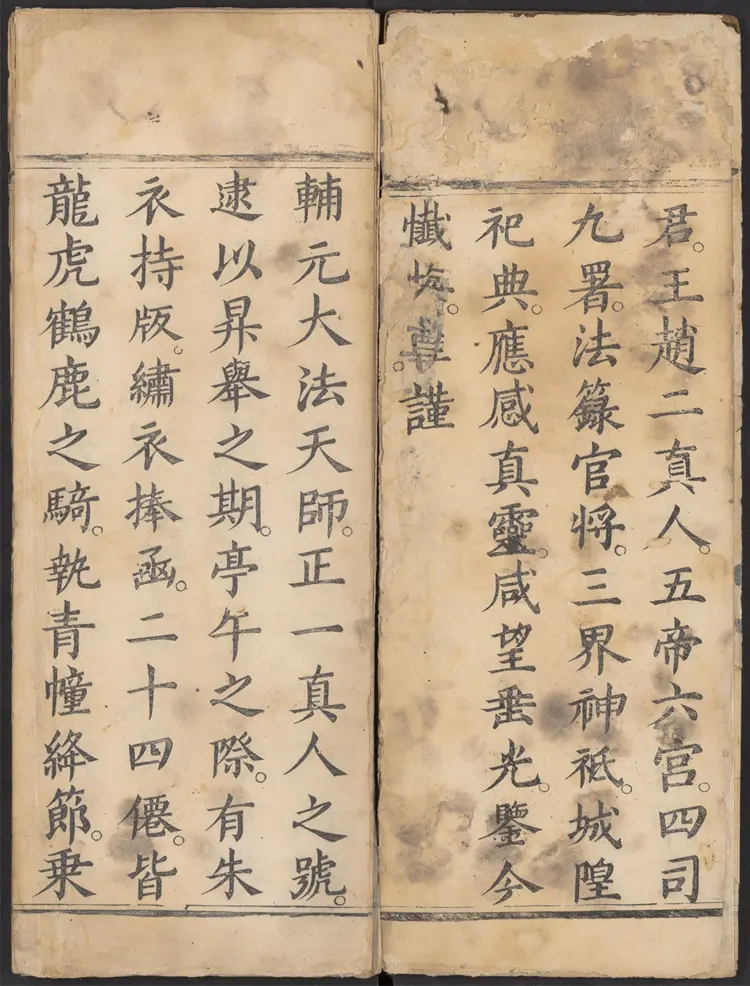 君。王趙二真人。五帝六宮。四司
九署。法籙官將。三界神祇。城隍
祀典。應感真靈。咸望垂光。鑒今
懺悔。尊。謹
輔元大法天師。正一真人之號。
逮以昇舉之期。亭午之際。有朱
衣持版。繡衣捧函。二十四僊。皆
龍虎鶴鹿之騎。執青幢絳節。乘